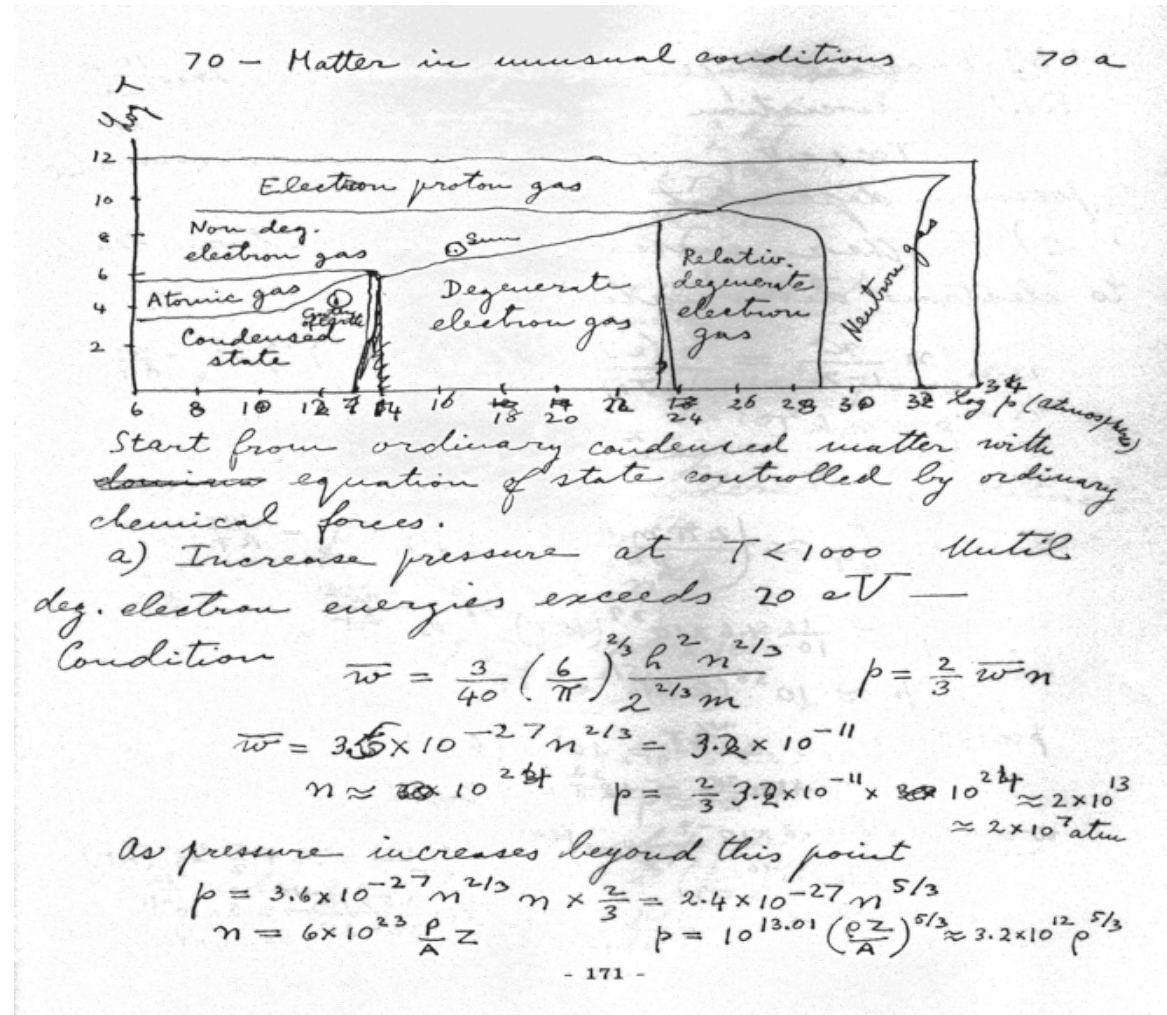 70 – Matter in unusual conditions 70 a
Log T
12
Electron proton gas
10
Non deg.
8
electron gas
Sun
6
Atomic gas
4
Condensed
state
2
Degenerate
electron gas
Relativ.
degenerate
electron
gas
Neutron gas
6 8 10 12 14 16 18 20 22 24 26 28 30 32 Log p (atmospheres)
Start from ordinary condensed matter with
equation of state controlled by ordinary
chemical forces.
a) Increase pressure at T < 1000 Until
deg. electron energies exceeds 20 eV —
Condition w̄ = 3/40 (6/π)^{2/3} h² n^{2/3} / 2^{2/3} m p = 2/3 w̄ n
w̄ = × 10^{-27} n^{2/3} = 3.2 × 10^{-11}
n ≈ 10^{24} p = 2/3 3.2 × 10^{-11} × 10^{24} ≈ 2 × 10^{13}
≈ 2 × 10^7 atm
As pressure increases beyond this point
p = 3.6 × 10^{-27} n^{2/3} n × 2/3 = 2.4 × 10^{-27} n^{5/3}
n = 6 × 10^{23} ρ/A Z p = 10^{13.01} (ρZ/A)^{5/3} ≈ 3.2 × 10^{12} ρ^{5/3}
- 171 -